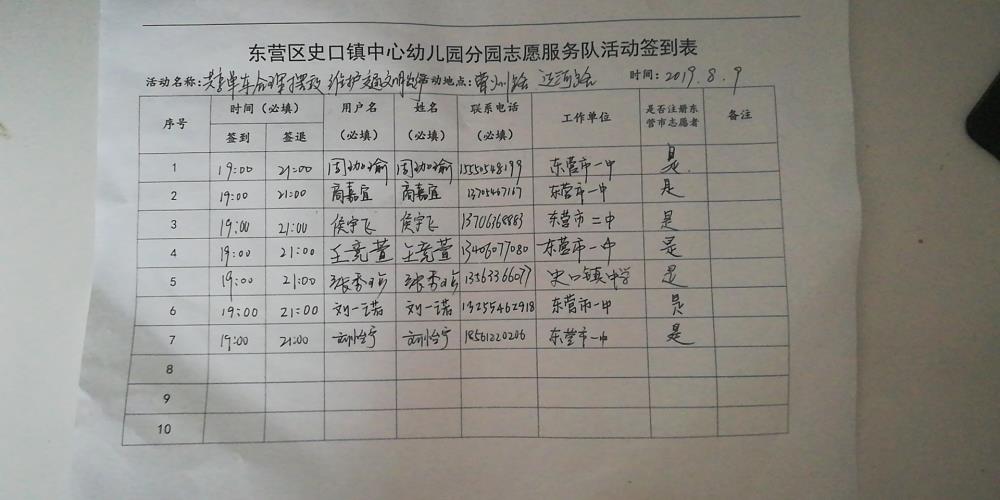 东营区史口镇中心幼儿园分园志愿服务队活动签到表
活动名称:共享单车合理摆放 维护交通文明 活动地点: 曹州路 运河路 时间: 2019.8.9
序号 时间（必填） 签到 签退 用户名（必填） 姓名（必填） 联系电话（必填） 工作单位 是否注册东营市志愿者 备注
1 19:00 21:00 周劭瑜 周劭瑜 15550548199 东营市一中 是
2 19:00 21:00 商嘉宜 商嘉宜 13705467167 东营市一中 是
3 19:00 21:00 侯宇飞 侯宇飞 13706368883 东营市二中 是
4 19:00 21:00 王竞萱 王竞萱 13406077080 东营市一中 是
5 19:00 21:00 张秀珍 张秀珍 13563366077 史口镇中学 是
6 19:00 21:00 刘一诺 刘一诺 13255462918 东营市一中 是
7 19:00 21:00 刘怡宁 刘怡宁 18561220206 东营市一中 是
8
9
10